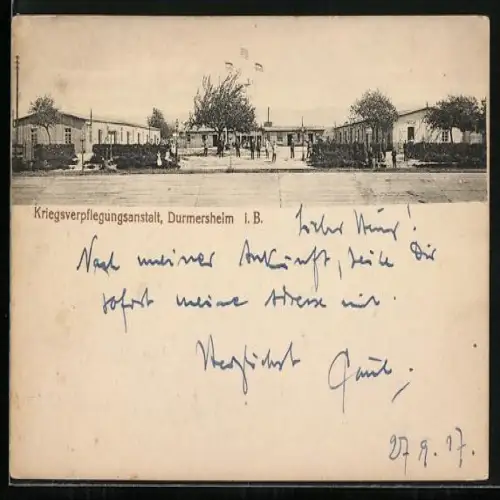 Kriegsverpflegungsanstalt, Durmersheim i. B.
Lieber
Nach meiner Ankunft, teile Dir
sofort meine Adresse mit.
Herzlichst
27 9. 17.